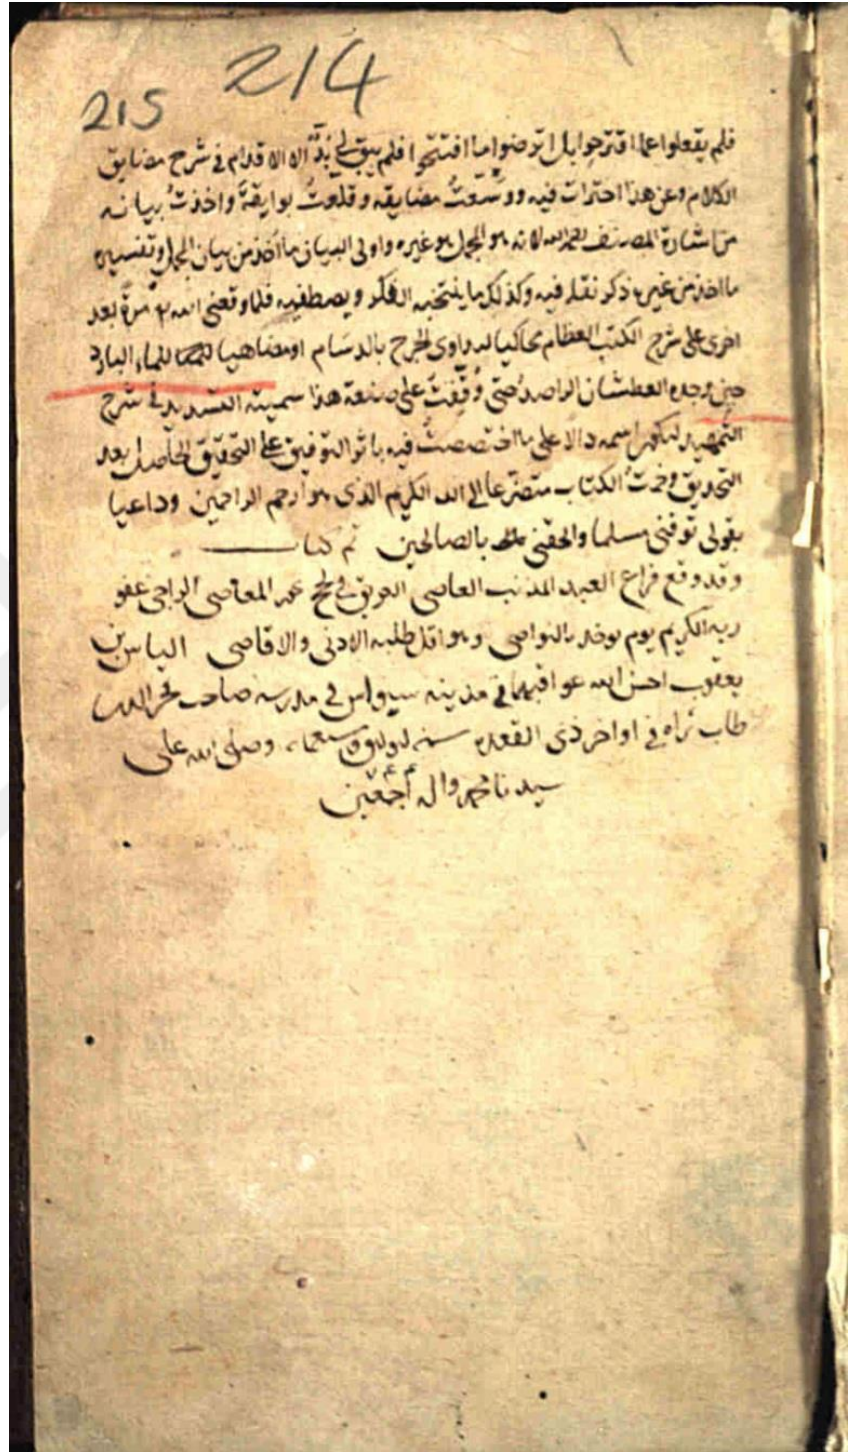 214
215
فلم يقعلوا عما اقترحوا بل لم ترضوا ما افتتحوا فلم يبق لي بدّ الا الاقدام في شرح مضايق
الكلام وعن هذا اخترات فيه ووسّعتُ مضايقه وقلعتُ بوايقهُ واخذتُ بيانه
من اشارة المصنف رحمه الله لانه هو المجمل هو غيره واولى البيان ما اخذ من بيان المجمل وتفسيره
ما اخذ من غيره ذكر نقله فيه وكذلك ما ينتخبه الفكر ويصطفيه فلما وقعني الله مرة بعد
اخرى على شرح الكتب العظام محاكيا لمداوى الجرح بالدسام او مضاهيا للماء البارد
حين وجده العطشان الراصد حتى وُقِّفتُ على صنعة هذا سميته التسديد في شرح
التمهيد ليكون اسمه دالا على ما اختصصتُ فيه باثر التوفيق على التحقيق الحاصل بعد
التدقيق وختمتُ الكتاب متضرعا الى الله الكريم الذى هو ارحم الراحمين وداعيا
بقولى توفنى مسلما والحقنى بالصالحين تم كتاب
وقد وقع فراغ العبد المذنب العاصى الغريق في لجج بحر المعاصى الراجى عفو
ربه الكريم يوم يوخذ بالنواصى وهو اقل طلبه الادنى والاقاصى الياس بن
يعقوب احسن الله عواقبهما في مدينه سيواس في مدرسه صاحب فخر الدين
طاب ثراه في اواخر ذى القعده سنه وسبعمائه وصلى الله على
سيدنا محمد واله اجمعين